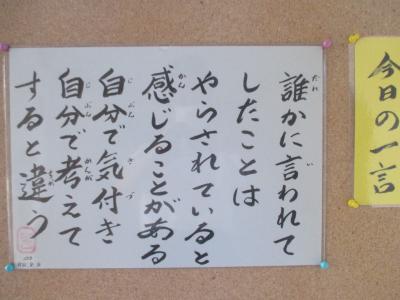 今日の一言
誰かに言われて
したことは
やらされていると
感じることがある
自分で気付き
自分で考えて
すると違う